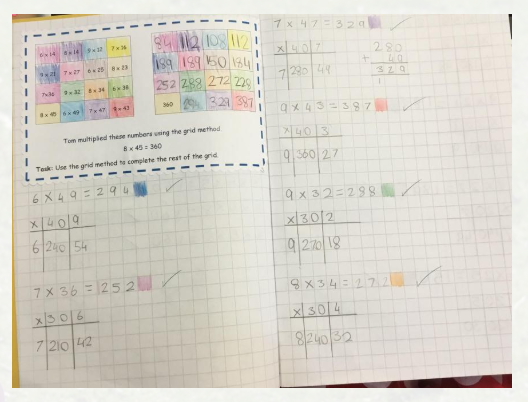 6 x 14 8 x 14 9 x 12 7 x 16
9 x 21 7 x 27 6 x 25 8 x 23
7x36 9 x 32 8 x 34 6 x 38
8 x 45 6 x 49 7 x 47 9 x 43
84 112 108 112
189 189 150 184
252 288 272 228
360 329 387
Tom multiplied these numbers using the grid method
8 x 45 = 360
Task: Use the grid method to complete the rest of the grid.
6 x 49 = 294
x 40 9
6 240 54
7 x 36 = 252
x 30 6
7 210 42
7 x 47 = 329
x 40 7
7 280 49
280
+
329
1
9 x 43 = 387
x 40 3
9 360 27
9 x 32 = 288
x 30 2
9 270 18
8 x 34 = 272
x 30 4
8 240 32